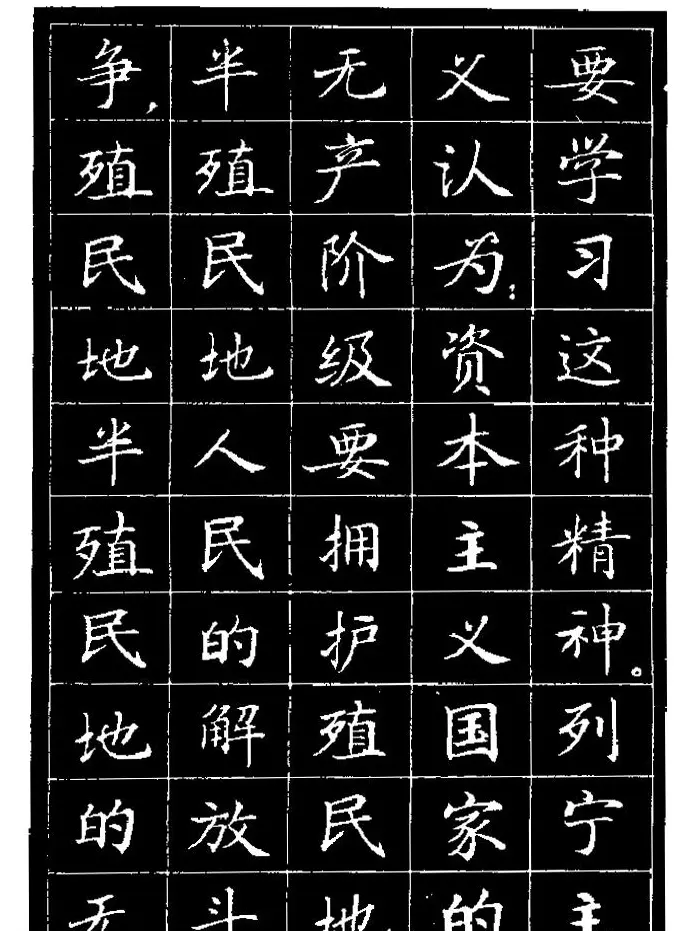 要学习这种精神。列宁主
义认为:资本主义国家的
无产阶级要拥护殖民地
半殖民地人民的解放斗
争,殖民地半殖民地的无